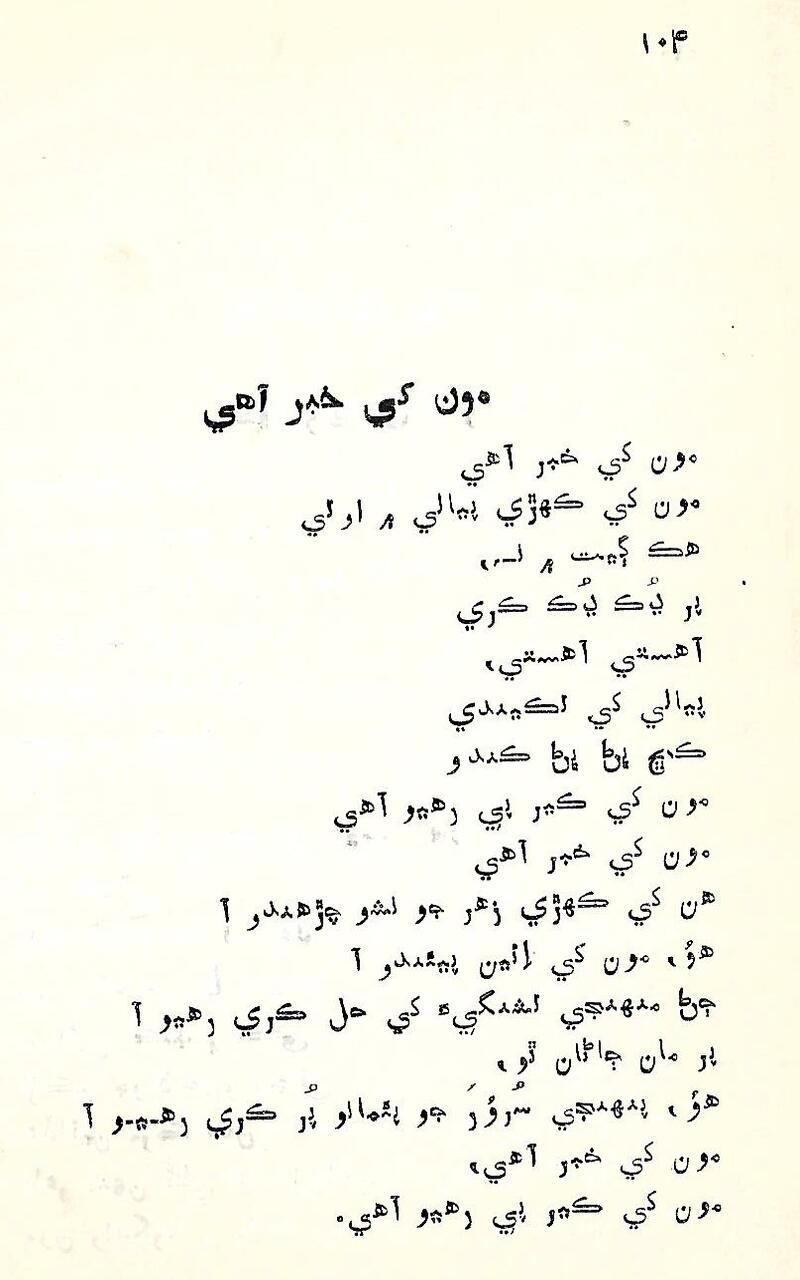 ۱۰۴
مون کي خبر آهي
مون کي خبر آهي
مون کي ڪهڙي پيالي ۾ اوتي
هڪ ڳيت ۾ نـ،
پر ڍُڪ ڍُڪ ڪري
آهستي آهستي،
پيالي کي لڪيندي
ڪنڇ ڀڻ ڀڻ ڪندو
مون کي ڪير پي رهيو آهي
مون کي خبر آهي
هن کي ڪهڙي زهر جو نشو چڙهندو آ
هوُ، مون کي اِئين پيئندو آ
ڄڻ منهنجي تشنگيءَ کي حل ڪري رهيو آ
پر مان ڄاڻان ٿو،
هوُ، پنهنجي سُروُرَ جو پٿمالو پُر ڪري رهـيـو آ
مون کي خبر آهي،
مون کي ڪير پي رهيو آهي.